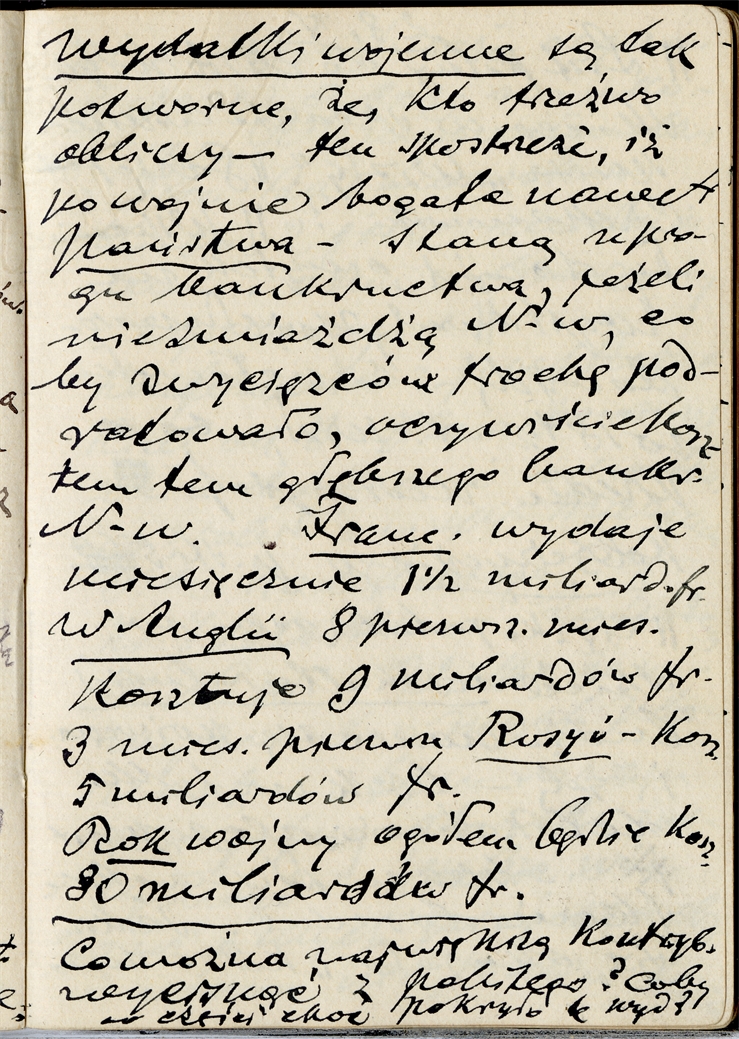 wydatki wojenne są tak
potworne, że, kto trzeźwo
obliczy — ten spostrzeże, iż
po wojnie bogate nawet
państwa — staną u pro-
gu bankructwa, jeżeli
nie zmiażdżą N-w, co
by zwycięzców trochę pod-
ratowało, oczywiście kosz
tem tem głębszego bankr.
N-w. Franc. wydaje
miesięcznie 1½ miliard. fr.
W Anglii 8 pierwsz. mies.
Kosztuje 9 miliardów fr.
3 mies. pierwsz. Rosyi — Kosz.
5 miliardów fr.
Rok wojny ogółem będzie Kosz.
80 miliardów fr.
Co można największą Kontryb.
wycisnąć z pobitego? Coby
w części choć pokryło te wyd?